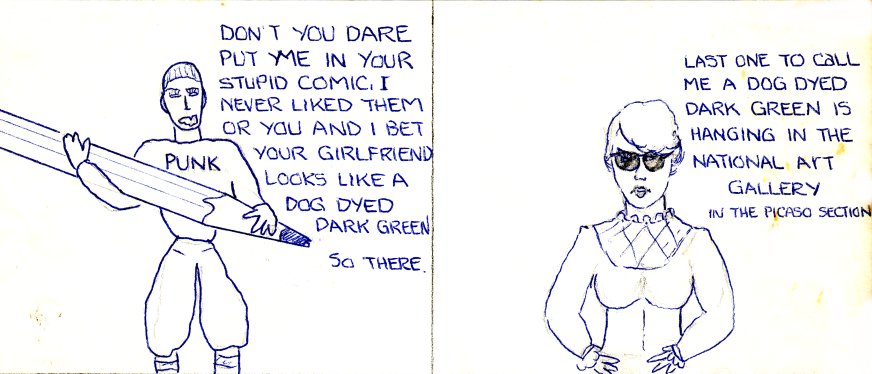 DON'T YOU DARE
PUT ME IN YOUR
STUPID COMIC, I
NEVER LIKED THEM
OR YOU AND I BET
YOUR GIRLFRIEND
LOOKS LIKE A
DOG DYED
DARK GREEN
SO THERE.
PUNK
LAST ONE TO CALL
ME A DOG DYED
DARK GREEN IS
HANGING IN THE
NATIONAL ART
GALLERY
IN THE PICASO SECTION